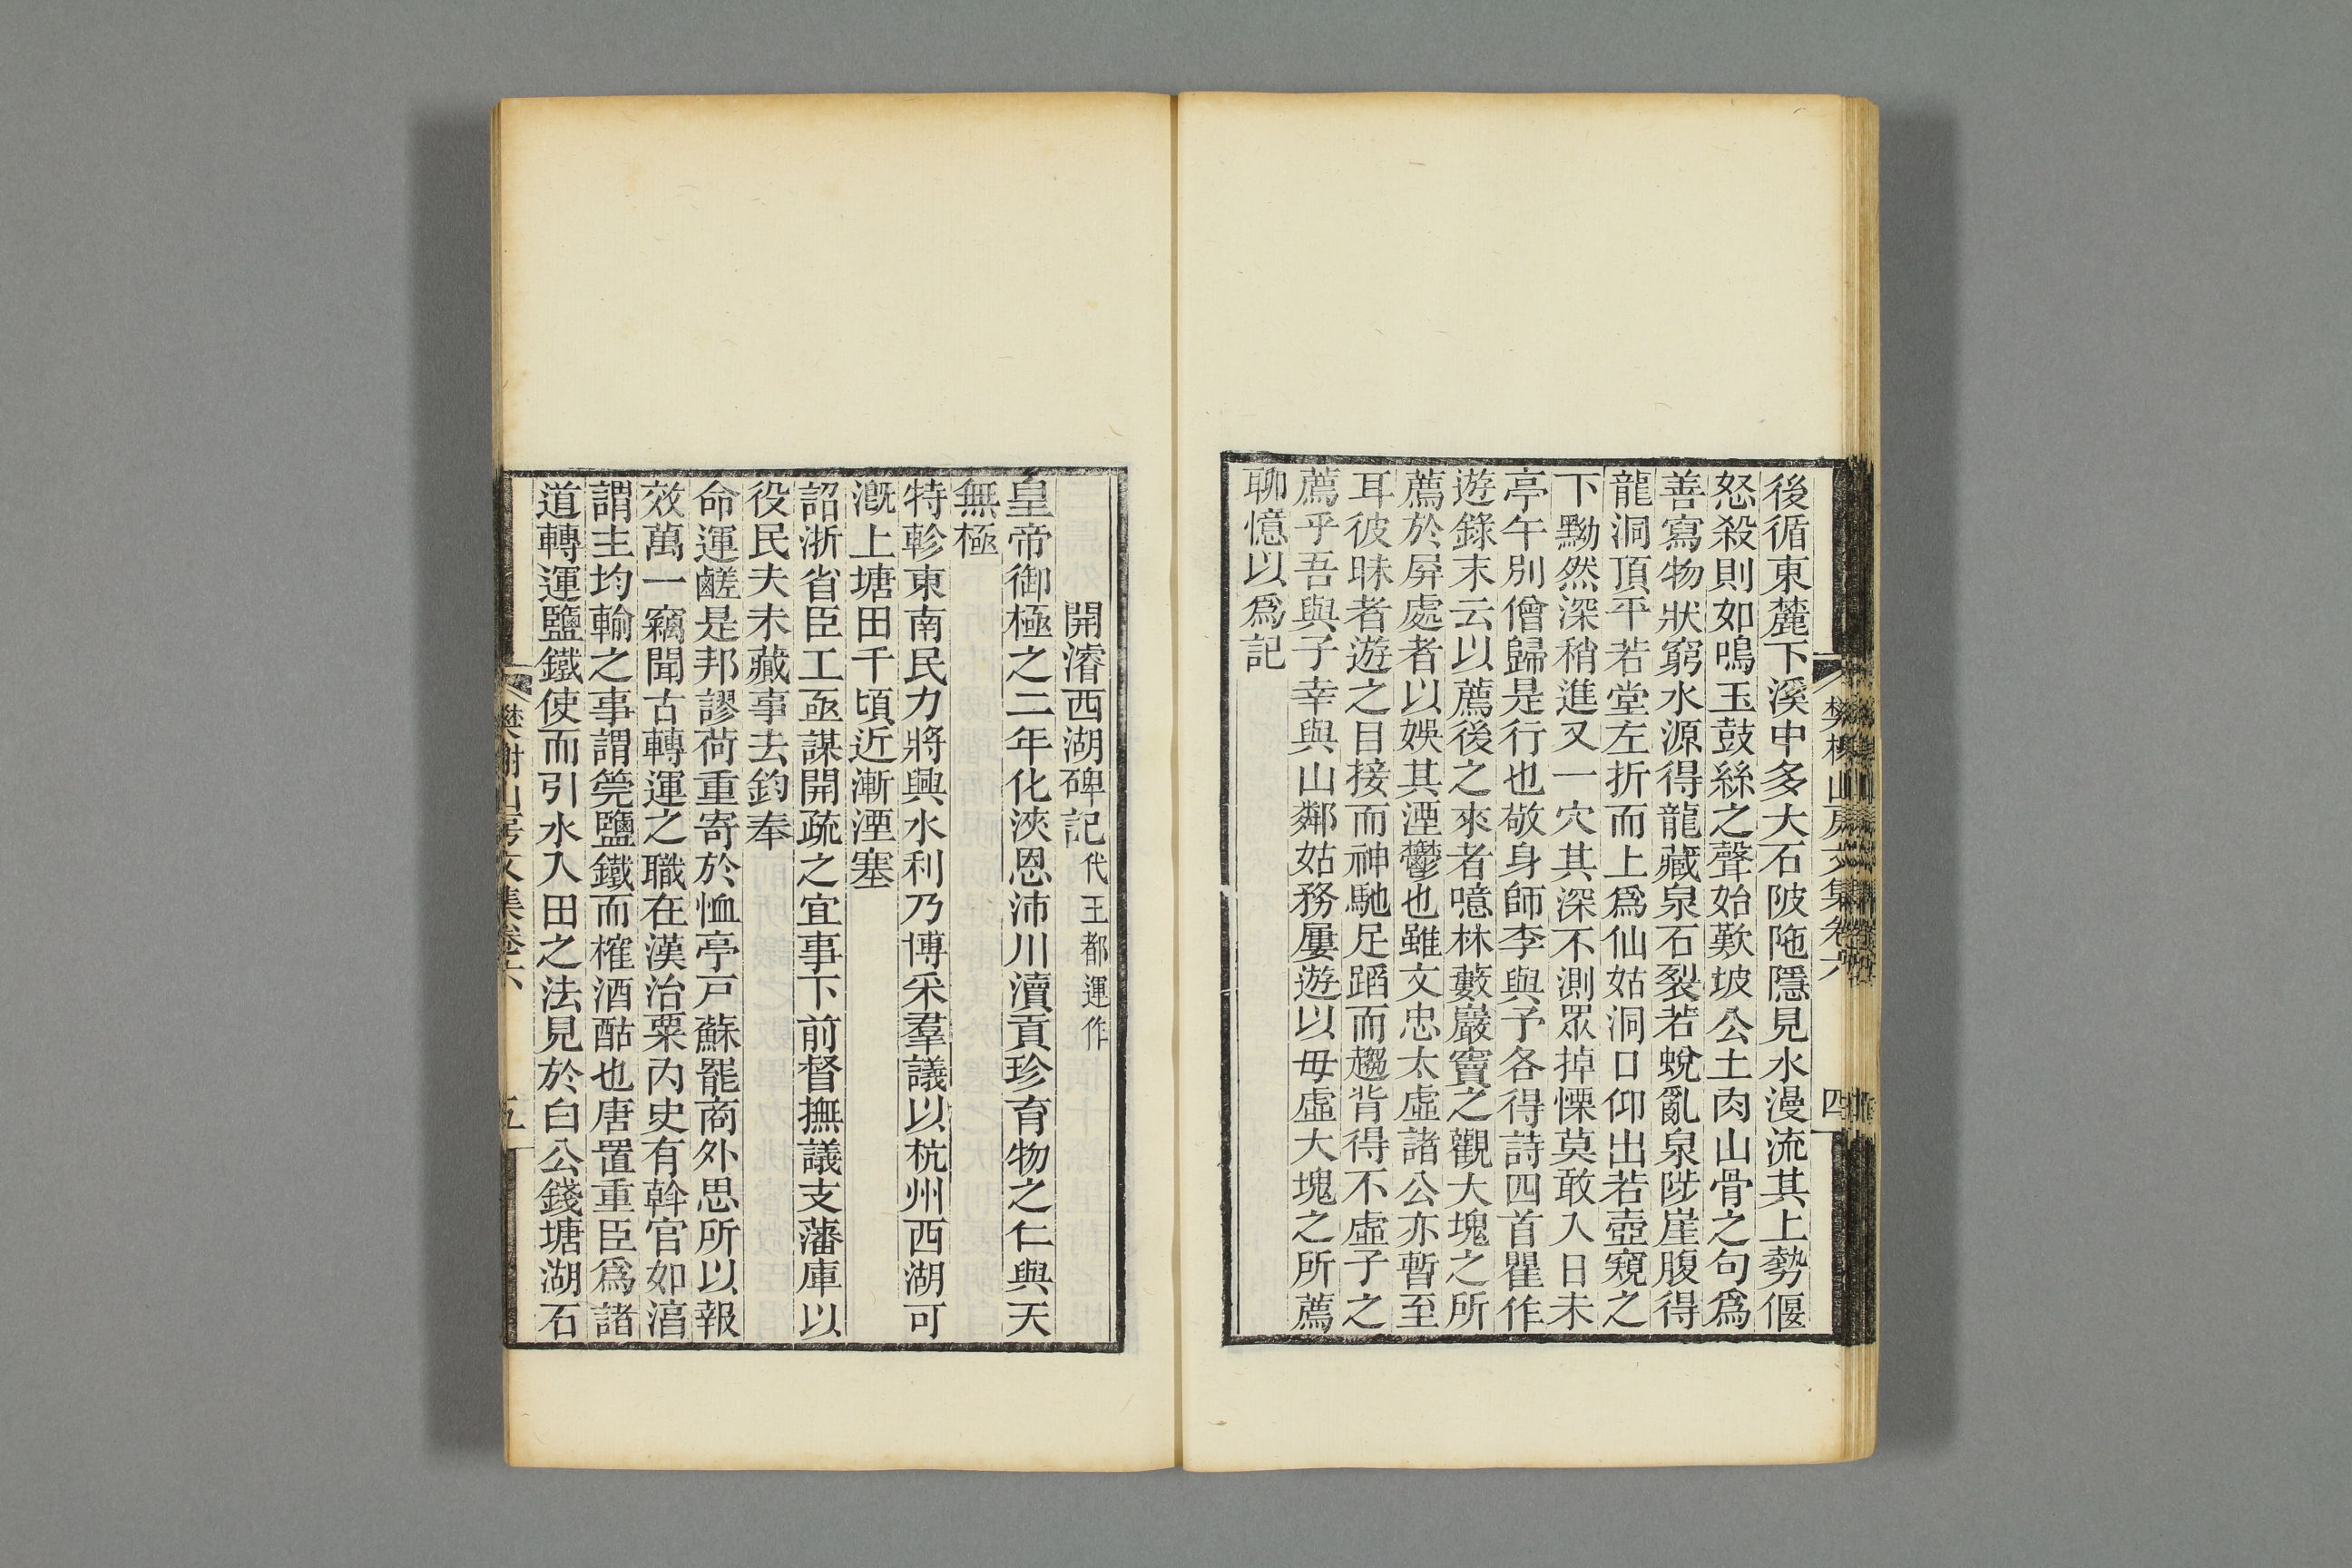 後循東麓下溪中多大石陂陁隱見水漫流其上勢偃
怒殺則如鳴玉鼓絲之聲始歎坡公土肉山骨之句爲
善寫物狀窮水源得龍藏泉石裂若蛻亂泉陟崖腹得
龍洞頂平若堂左折而上爲仙姑洞口仰出若壺窺之
下黝然深稍進又一穴其深不測眾掉慄莫敢入日未
亭午別僧歸是行也敬身師李與予各得詩四首瞿作
遊錄末云以薦後之來者噫林藪巖竇之觀大塊之所
薦於屏處者以娛其湮鬱也雖文忠太虛諸公亦暫至
耳彼昧者遊之目接而神馳足蹈而趨背得不虛子之
薦乎吾與子幸與山鄰姑務屢遊以毋虛大塊之所薦
聊憶以爲記
樊榭山房文集卷六
四
開濬西湖碑記代王都運作
皇帝御極之二年化浹恩沛川瀆貢珍育物之仁與天
無極
特軫東南民力將興水利乃博采羣議以杭州西湖可
漑上塘田千頃近漸湮塞
詔浙省臣工亟謀開疏之宜事下前督撫議支藩庫以
役民夫未蕆事去鈞奉
命運鹺是邦謬荷重寄於恤亭戸蘇罷商外思所以報
效萬一竊聞古轉運之職在漢治粟內史有斡官如湻
謂主均輸之事謂筦鹽鐵而榷酒酤也唐置重臣爲諸
道轉運鹽鐵使而引水入田之法見於白公錢塘湖石
樊榭山房文集卷六
五